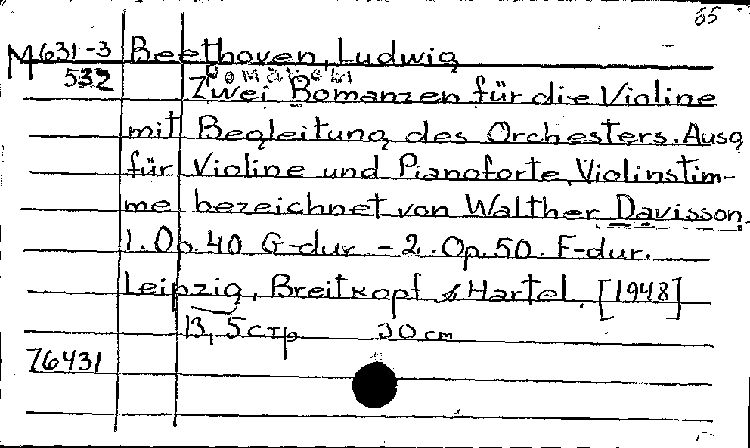 55
M 631-3 Beethoven, Ludwig
532 Romanzen
Zwei Romanzen für die Violine
mit Begleitung des Orchesters. Ausg
für Violine und Pianoforte, Violinstim-
me bezeichnet von Walther Davisson.
1. Op. 40 G-dur - 2. Op. 50. F-dur.
Leipzig, Breitkopf & Hartel. [1948]
13, 5 стр 30 cm
76431